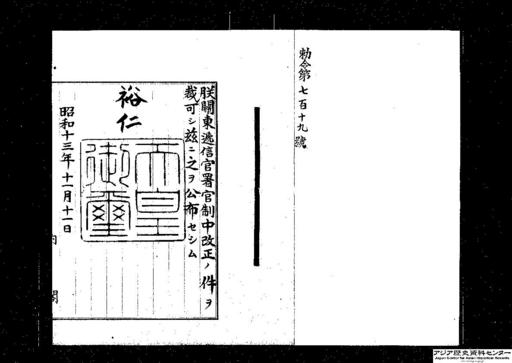 勅令第七百十九號
朕關東遞信官署官制中改正ノ件ヲ
裁可シ茲ニ之ヲ公布セシム
裕仁
天皇
御璽
昭和十三年十一月十一日
内
閣
アジア歴史資料センター
Japan Center for Asian Historical Records